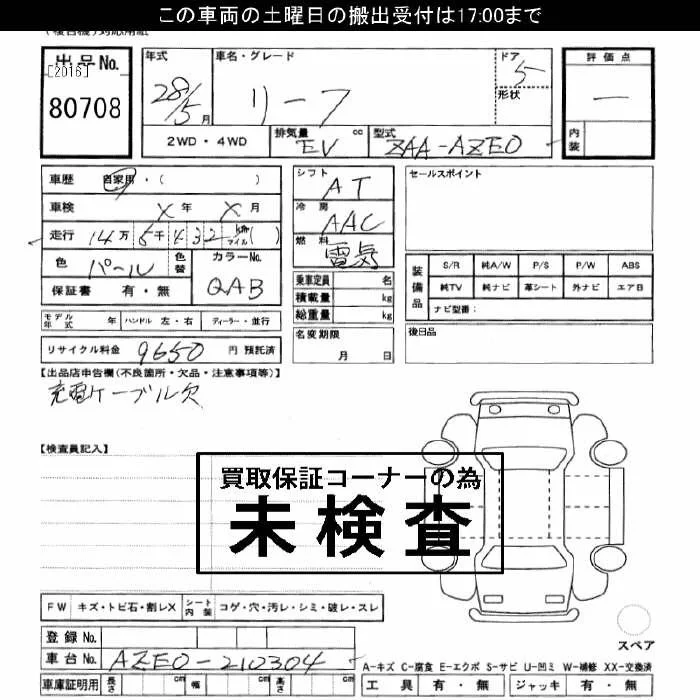 この車両の土曜日の搬出受付は17:00まで
出品No.
[2016]
80708
年式
28/5月
車名・グレード
リーフ
ドア
5
形状
評価点
―
内装
2WD・4WD
排気量 EV cc
型式 ZAA-AZE0
車歴 自家用・( )
車検 X年 X月
走行 14万5千432km マイル( )
色 パール
色替
カラーNo.
QAB
保証書 有・無
シフト AT
冷房 AAC
燃料 電気
乗車定員 名
積載量 kg
総重量 kg
名変期限
月 日
セールスポイント
装備品
S/R 純A/W P/S P/W ABS
純TV 純ナビ 革シート 外ナビ エアB
ナビ型番:
後日品
モデル年式 年 ハンドル 左・右 ディーラー・並行
リサイクル料金 9650 円 預託済
【出品店申告欄(不良箇所・欠品・注意事項等)】
充電ケーブル欠
【検査員記入】
買取保証コーナーの為
未検査
FW キズ・トビ石・割レX シート内装 コゲ・穴・汚レ・シミ・破レ・スレ
登録No.
車台No. AZE0-210304
車庫証明用 長さ cm 幅 cm 高さ cm
スペア
A-キズ C-腐食 E-エクボ S-サビ U-凹ミ W-補修 XX-交換済
工具 有・無 ジャッキ 有・無